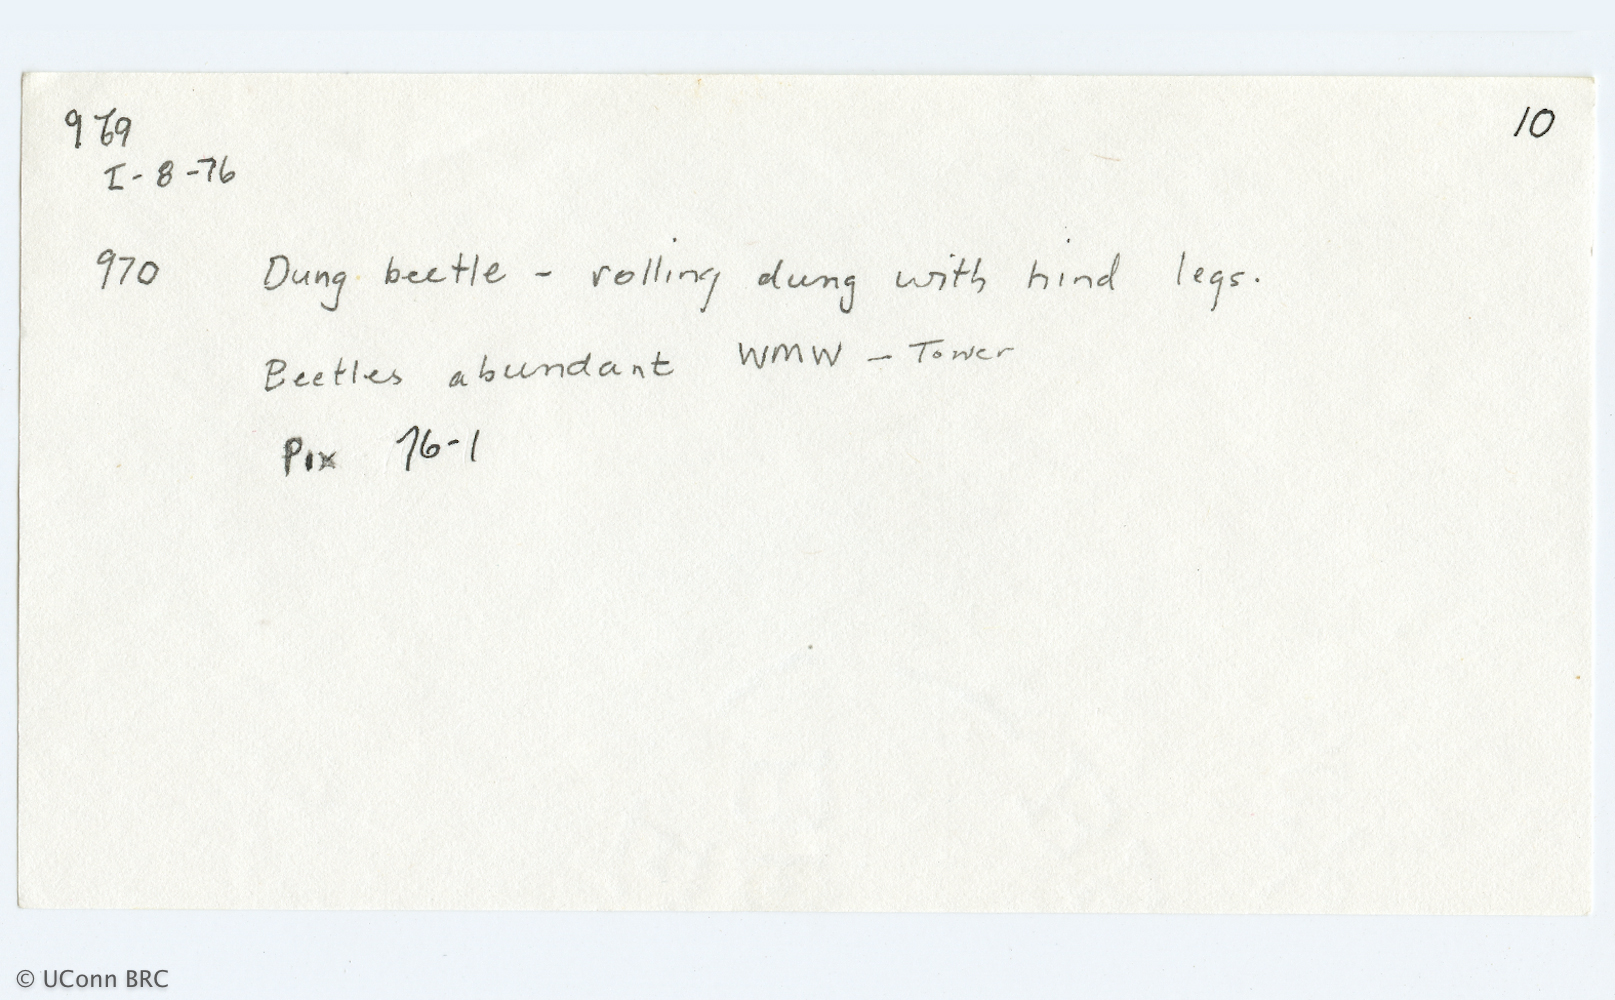 969
10
I-8-76
970 Dung beetle - rolling dung with hind legs.
Beetles abundant WMW - Tower
Pix 76-1
© UConn BRC